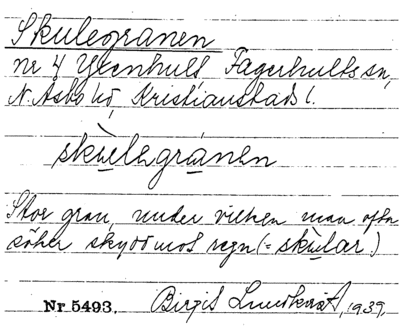 Skulegranen
nr 4 Ygenhult Fagerhults sn,
N. Åsbo hd, Kristianstads l.
skùlegránen
Stor gran, under vilken man ofta
söker skydd mot regn (= skùlar)
Nr 5493. Birgit Lundkvist, 1939.